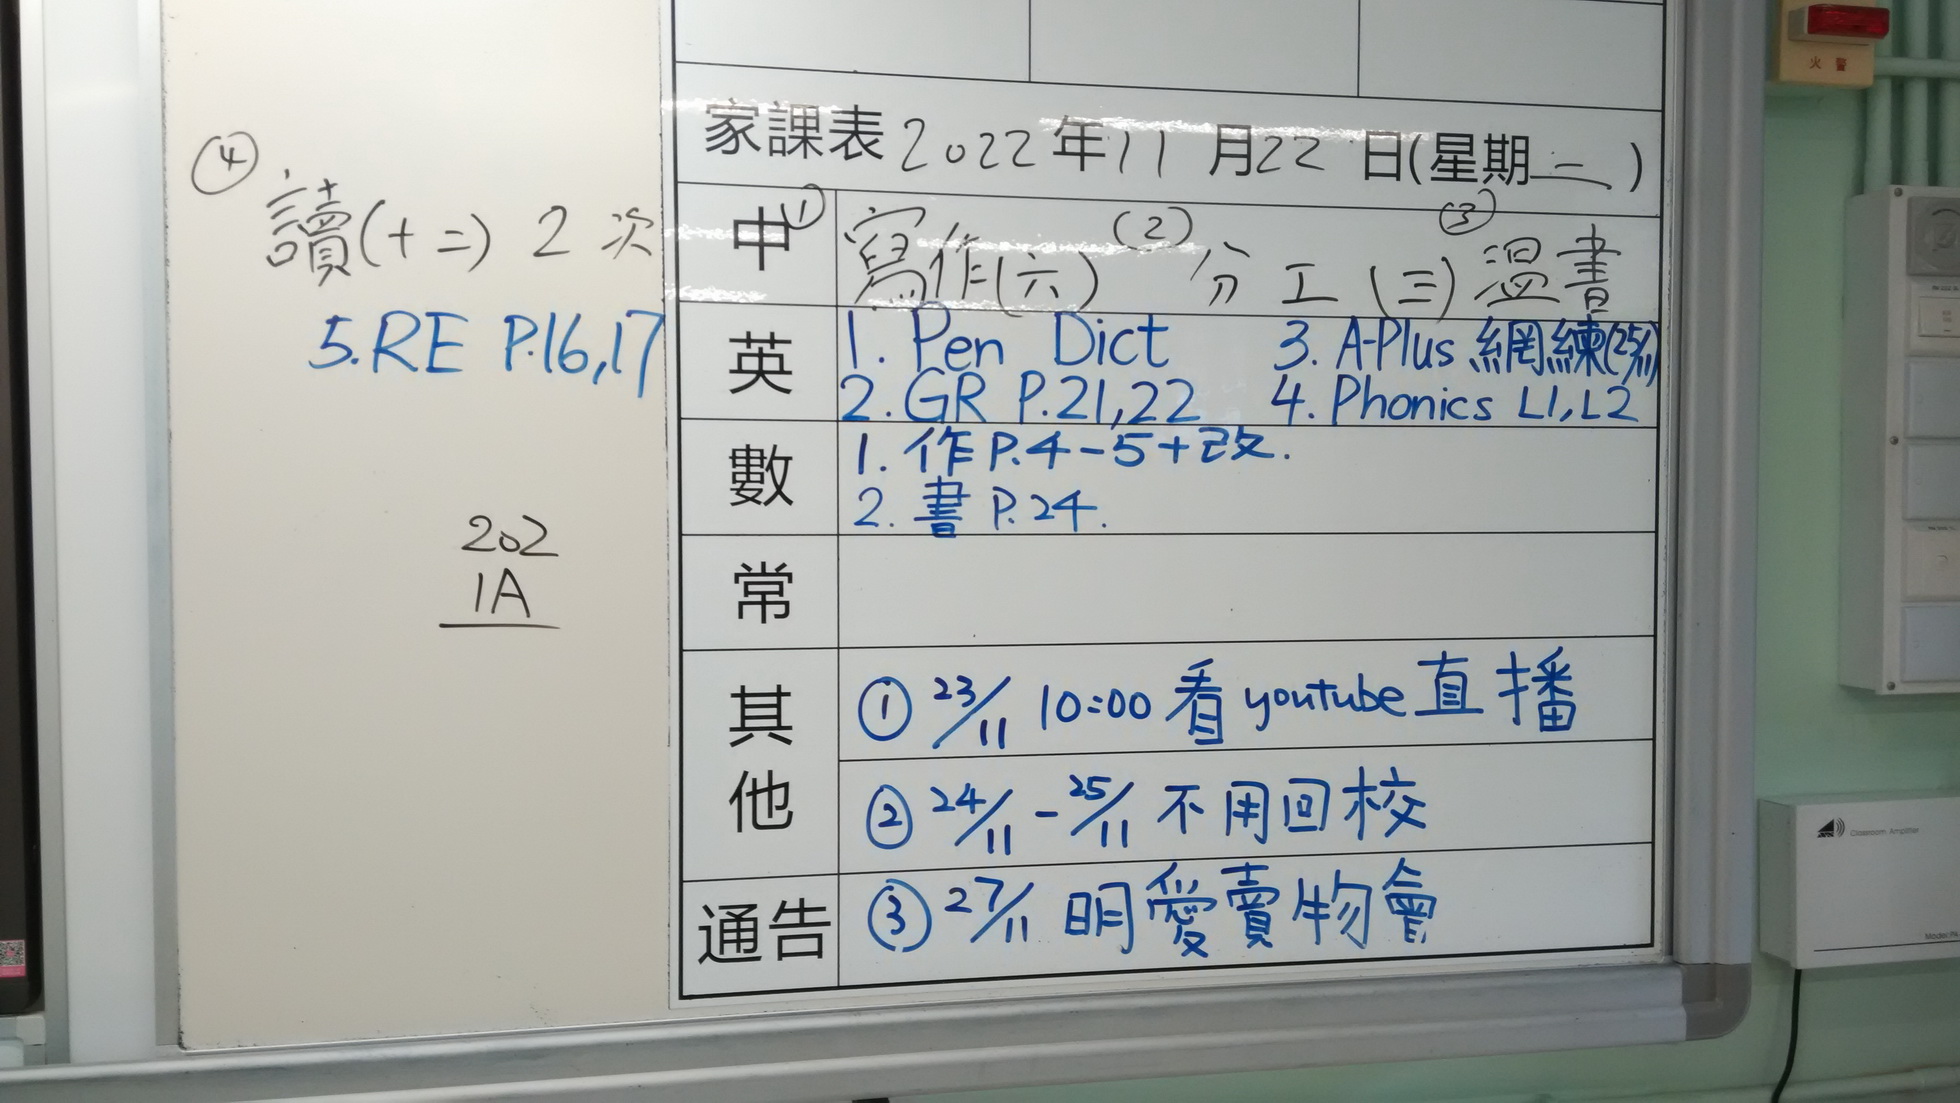 家課表 2022 年 11 月 22 日(星期二)
中 ① 寫作(六) (2) 分工(三) ③ 溫書
④ 讀(十二) 2 次
英 1. Pen Dict 3. A-Plus 網練(25/11)
2. GR P.21,22 4. Phonics L1, L2
5. RE P.16,17
數 1. 作 P.4-5+改.
2. 書 P.24.
202
1A
常
其他 ① 23/11 10:00 看 youtube 直播
② 24/11 - 25/11 不用回校
通告 ③ 27/11 明愛賣物會
火警
Classroom Amplifier